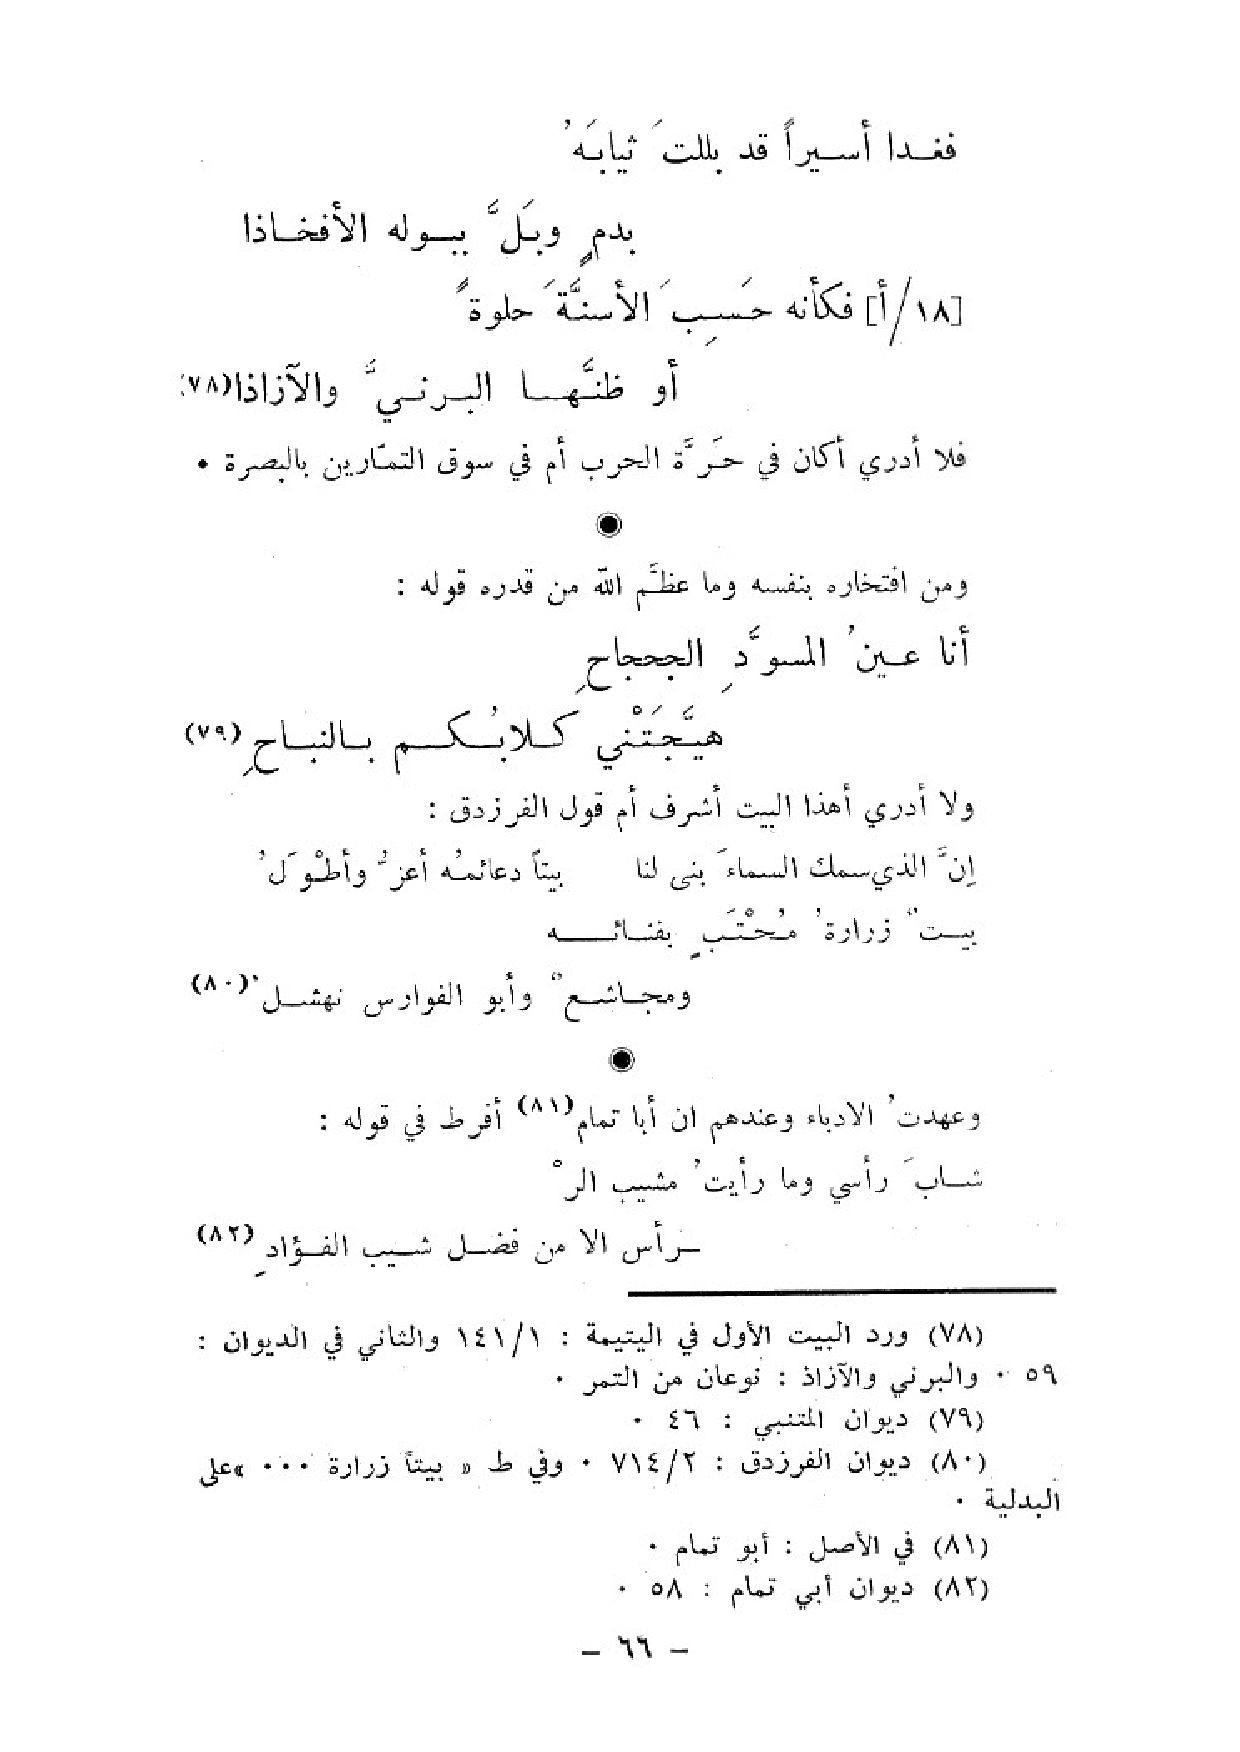 فغدا أسيراً قد بللتَ ثيابَهُ
بدمٍ وبَلَّ ببوله الأفخاذا
[١٨/أ] فكأنه حَسِبَ الأسنَّةَ حلوةً
أو ظنَّها البرنيَّ والآزاذا(٧٨)
فلا أدري أكان في حَرَّة الحرب أم في سوق التمّارين بالبصرة •
ومن افتخاره بنفسه وما عظَّم الله من قدره قوله :
أنا عينُ المسوَّدِ الجحجاحِ
هيَّجَتْني كلابُكم بالنباحِ (٧٩)
ولا أدري أهذا البيت أشرف أم قول الفرزدق :
إنَّ الذي سمك السماءَ بنى لنا بيتاً دعائمُه أعزُّ وأطْوَلُ
بيتٌ زرارةُ مُحْتَبٍ بفنائه
ومجاشعٌ وأبو الفوارس نهشلُ(٨٠)
وعهدتُ الادباء وعندهم ان أبا تمام(٨١) أفرط في قوله :
شابَ رأسي وما رأيتُ مشيب الرْ
ـرأس الا من فضل شيب الفؤادِ (٨٢)
(٧٨) ورد البيت الأول في اليتيمة : ١٤١/١ والثاني في الديوان :
٥٩ • والبرني والآزاذ : نوعان من التمر •
(٧٩) ديوان المتنبي : ٤٦ •
(٨٠) ديوان الفرزدق : ٧١٤/٢ • وفي ط « بيتاً زرارة ••• » على
البدلية •
(٨١) في الأصل : أبو تمام •
(٨٢) ديوان أبي تمام : ٥٨ •
– ٦٦ –